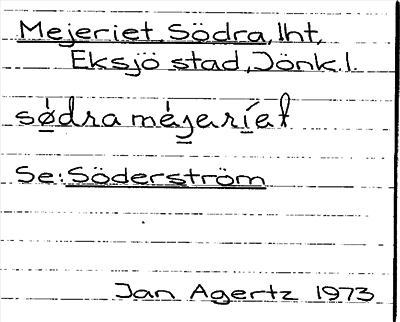 Mejeriet, Södra, lht,
Eksjö stad, Jönk.l.
sǿdra mèjeríet
Se: Söderström
Jan Agertz 1973